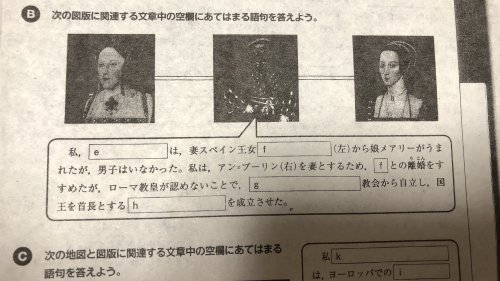 B 次の図版に関連する文章中の空欄にあてはまる語句を答えよう。
私, e は, 妻スペイン王女 f (左)から娘メアリーがうま
れたが, 男子はいなかった。私は, アン=ブーリン(右)を妻とするため, f との離婚をす
すめたが, ローマ教皇が認めないことで, g 教会から自立し, 国
王を首長とする h を成立させた。
C 次の地図と図版に関連する文章中の空欄にあてはまる
語句を答えよう。
私 k
は, ヨーロッパでの i